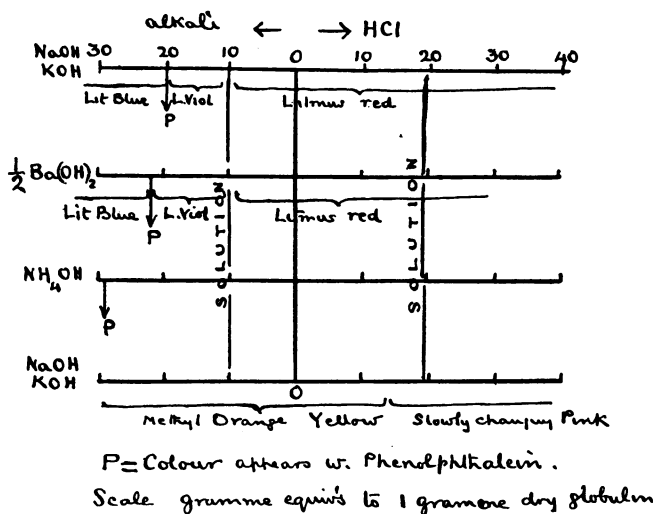 alkali ← → HCl
NaOH 30 20 10 0 10 20 30 40
KOH
Lit Blue L.Viol Litmus red
P
½ Ba(OH)₂
Lit Blue L.Viol Litmus red
P
SOLUTION SOLUTION
NH₄OH
P
NaOH
KOH
0
Methyl Orange Yellow Slowly changing Pink
P = Colour appears w. Phenolphthalein.
Scale gramme equivs to 1 gramme dry globulin